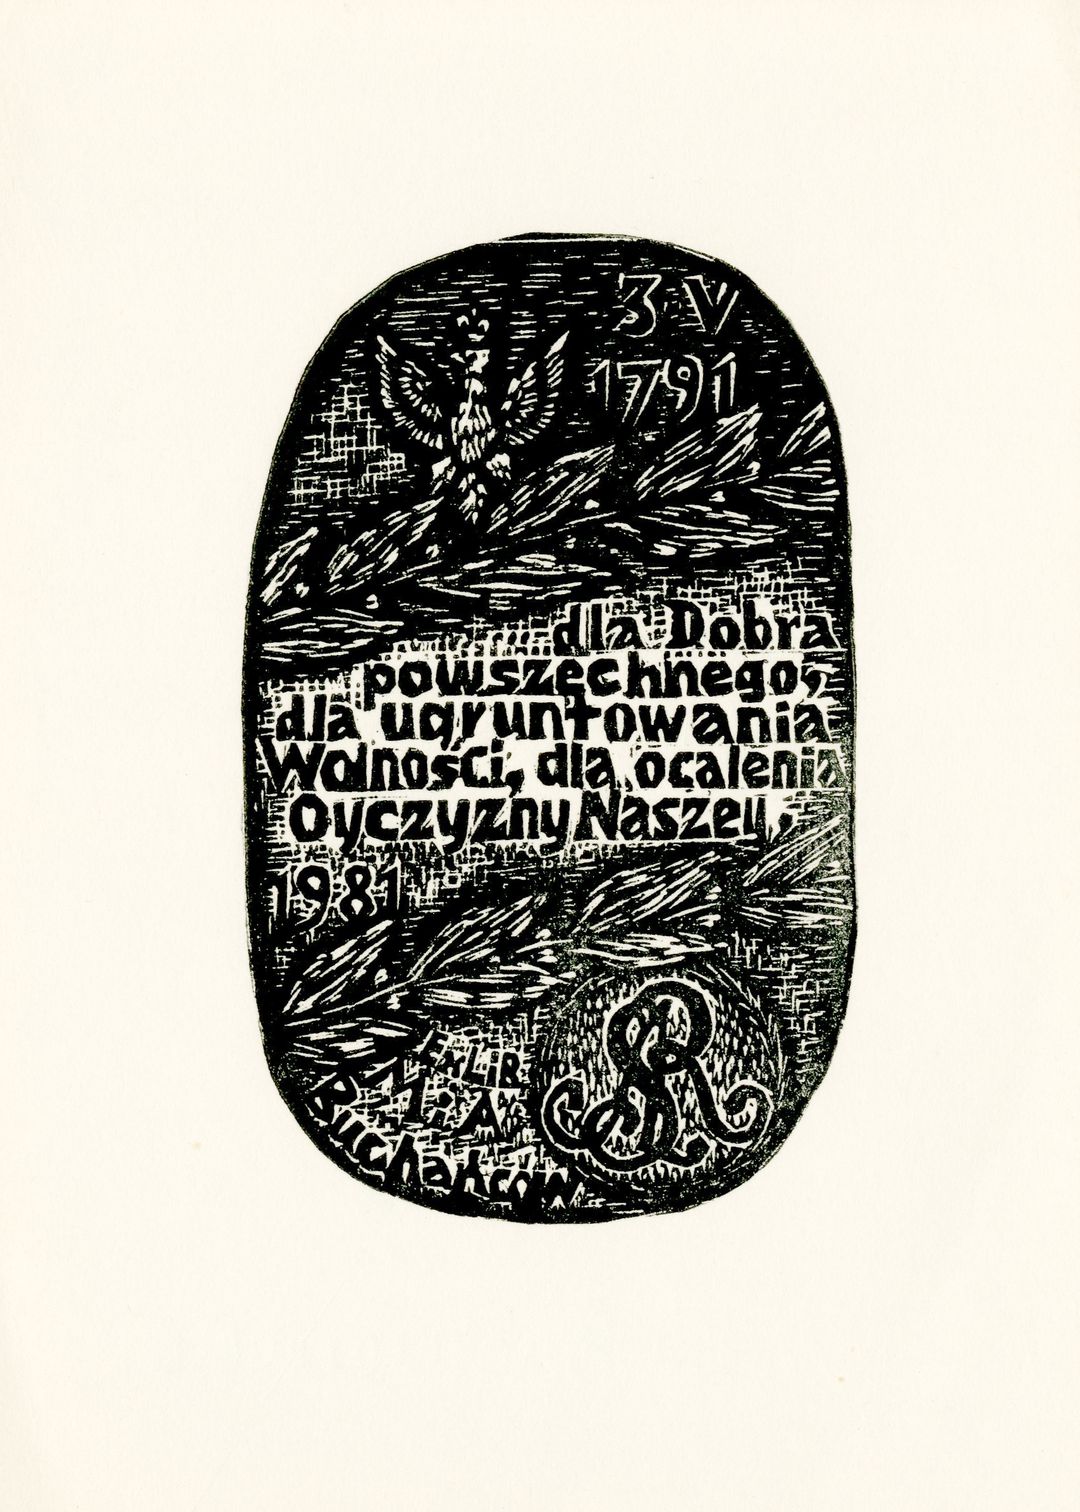 3 V
1791
dla Dobra
powszechnego,
dla ugruntowania
Wolności, dla ocalenia
Oyczyzny Naszey.
1981
EXLIB
M. A.
Buchańców
SAR